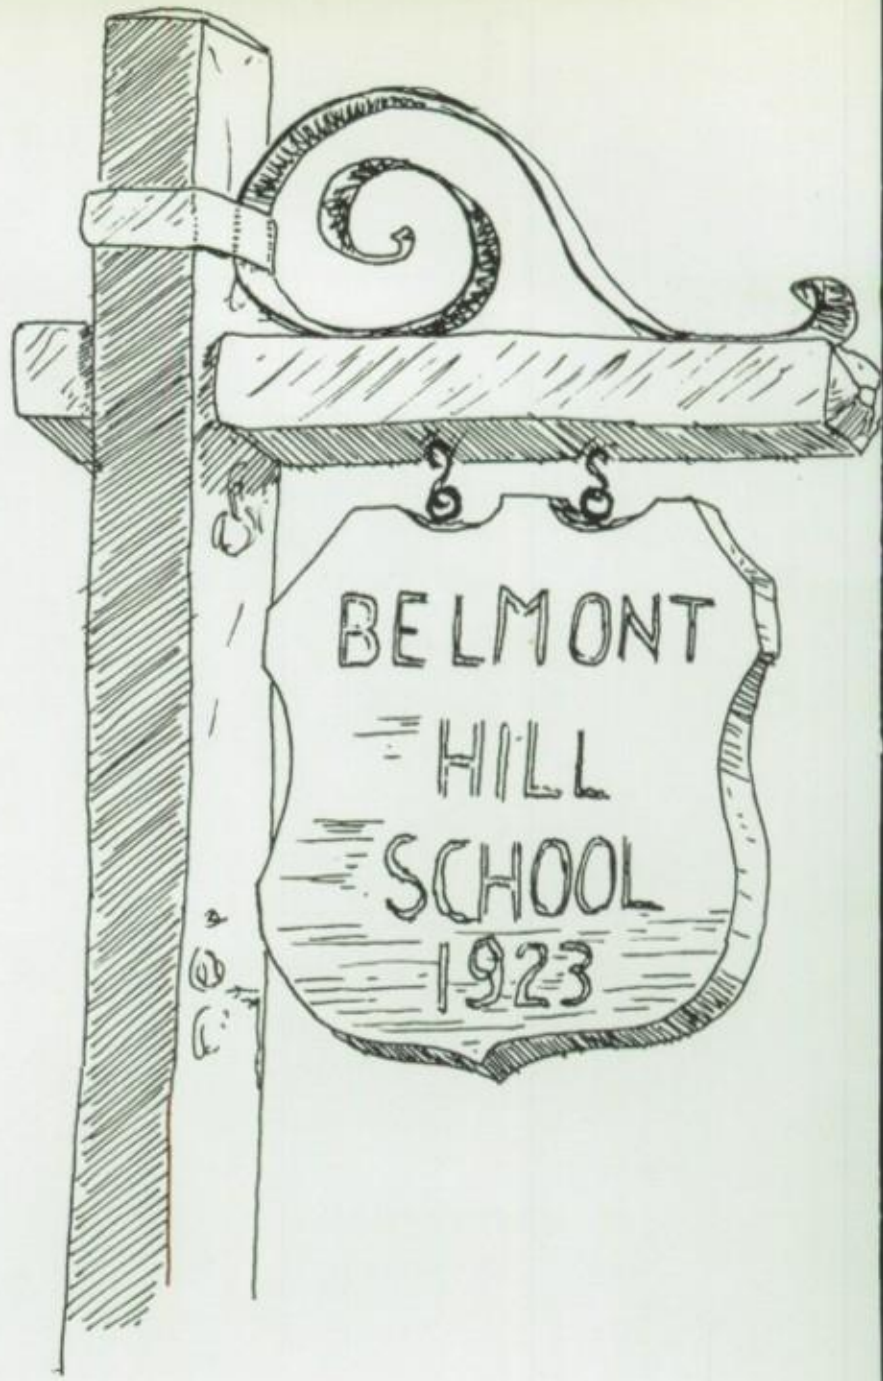 BELMONT
HILL
SCHOOL
1923